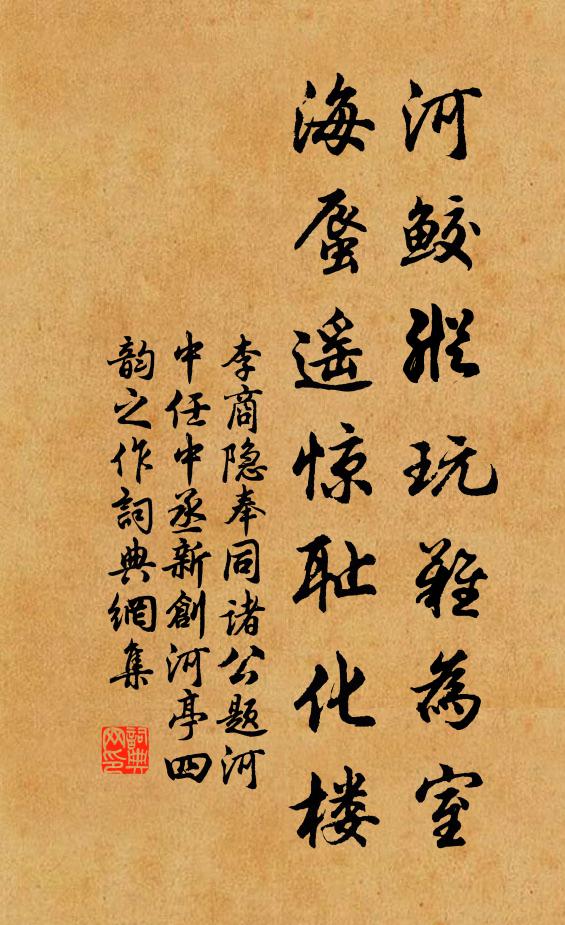 河鮫縱玩難為室
海蜃遥惊耻化楼
李商隐奉同诸公题河
中任中丞新創河亭四
韵之作詞典網集
詞典网印